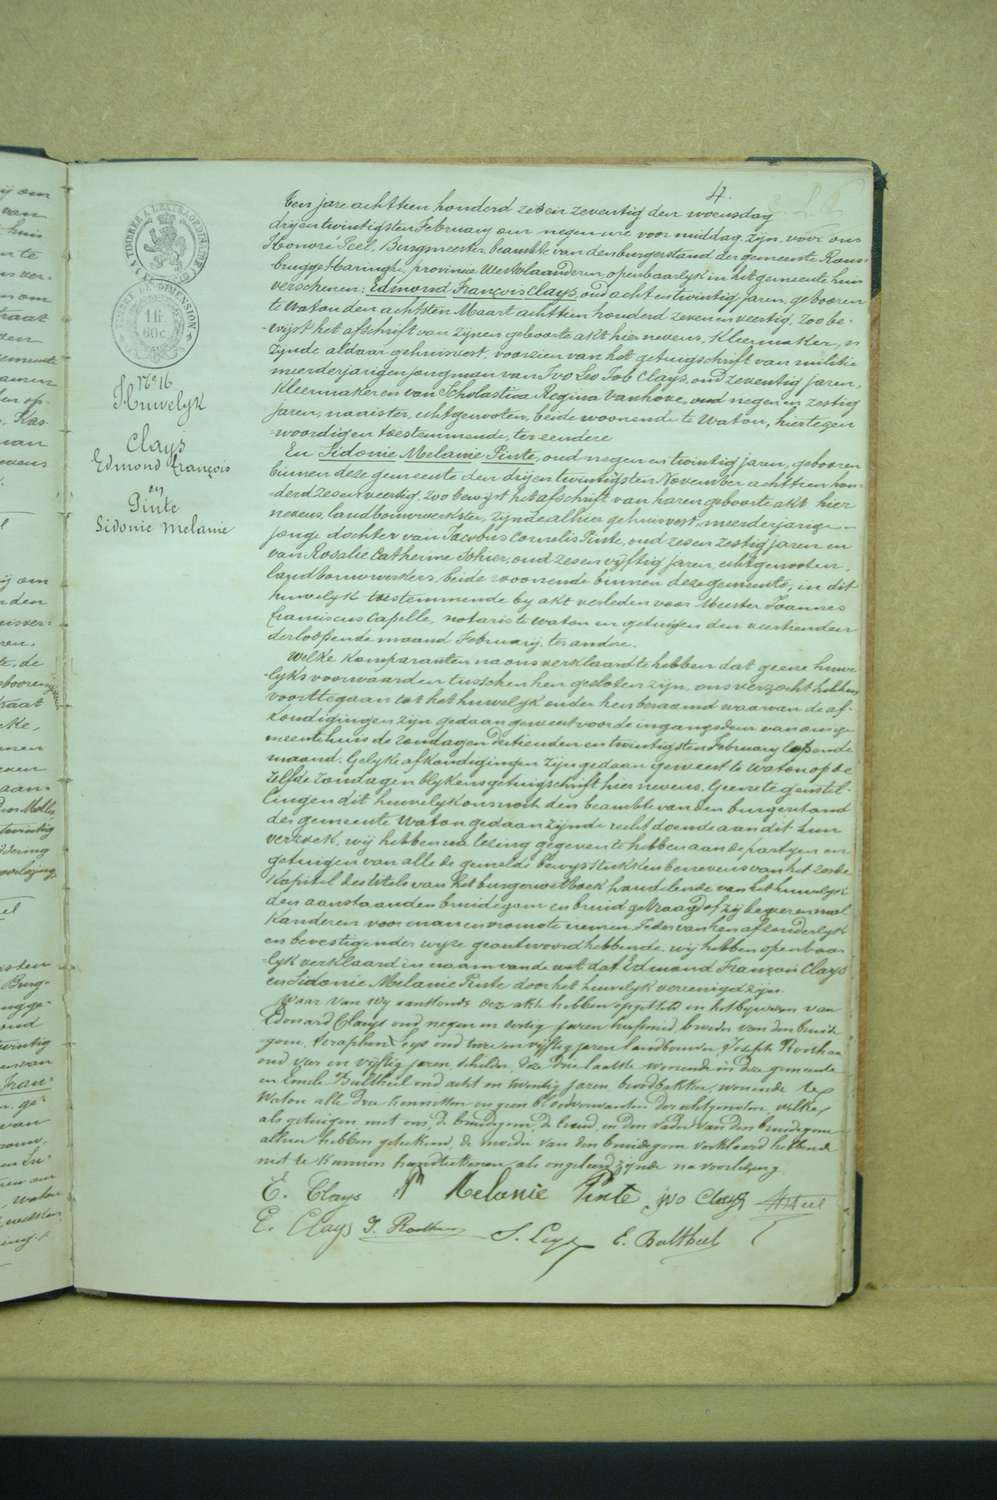 4.
TIMBRE DE DIMENSION
1 fr
60 c
N° 16
Huwelyk
Clays
Edmond François
en
Pinte
Sidonie Melanie
Een jare achttien honderd zes en zeventig den woensdag
dryentwintigsten February om negen ure voor middag, zyn voor ons
Honoré Peel, Burgmeester, beambte van den burgerstand der gemeente Rous-
brugge Haringhe, provincie Westvlaanderen, openbaarlyk in het gemeente huis
verschenen: Edmond François Clays, oud acht en twintig jaren, geboren
te Watou den achtsten Maart achttien honderd zeven en veertig, zoo be-
-wyst het afschrift van zynen geboorte akt hier nevens, kleermaker,
zynde aldaar gehuisvest, voorzien van het getuigschrift van militie
meerderjarigen jongman van Ivo Leo Job Clays, oud zeventig jaren,
kleermaker en van Scholastica Regina Vanhove, oud negen en zestig
jaren, naaister, echtgenooten, beide woonende te Watou, hier tegen
-woordig en toestemmende, ter eendere
En Sidonie Melanie Pinte, oud negen en twintig jaren, geboren
binnen deze gemeente den dryentwintigsten November achttien hon-
derd zes en veertig, zoo bewyst het afschrift van haren geboorte akt hier
nevens, landbouwwerkster, zynde alhier gehuisvest, meerderjarige
jonge dochter van Jacobus Cornelis Pinte, oud zes en zestig jaren en
van Rosalie Catherine Sohier, oud zes en vyftig jaren, echtgenooten,
landbouwwerkers, beide woonende binnen deze gemeente, in dit
huwelyk toestemmende by akt verleden voor Meester Joannes
Franciscus Capelle, notaris te Watou en getuigen den veertienden
der loopende maand February, ter andere.
Welke komparanten na ons verklaard te hebben dat geene huwe-
-lyks voorwaarden tusschen hen gesloten zyn, ons verzocht hebben
voort te gaan tot het huwelyk onder hen beraamd waarvan de af-
kondigingen zyn gedaan geweest voor de ingangsdeur van ons ge-
meentehuis de zondagen dertienden en twintigsten February loopende
maand. Gelyke afkondigingen zyn gedaan geweest te Watou op de
zelfde zondagen blykens getuigschrift hier nevens. Geene tegenstel-
-lingen dit huwelyk ons noch den beambte van den burgerstand
der gemeente Watou gedaan zynde recht doende aan dit hun
verzoek, wy hebben na lezing gegeven te hebben aan de partyen en
getuigen van alle de gemelde bewysstukken benevens van het zesde
kapittel des titels van het burgerwetboek handelende van het huwelyk
den aanstaanden bruidegom en bruid gevraagd of zy begeeren mal-
kanderen voor man en vrouw te nemen. Ieder van hen afzonderlyk
en bevestigender wyze geantwoord hebbende, wy hebben openbaar-
-lyk verklaard in naam van de wet dat Edmond François Clays
en Sidonie Melanie Pinte door het huwelyk vereenigd zyn.
Waar van wy aanstonds deze akte hebben opgesteld in het bywezen van
Edouard Clays oud negen en dertig jaren broeder van den bruide-
gom, Seraphin Leys oud twee en vyftig jaren landbouwer, Joseph
oud vier en vyftig jaren schilder, deze drie laatste wonende in deze gemeente
en Emile Baltheel oud acht en twintig jaren, broodbakker, wonende te
Watou alle drie kennissen en geen bloedverwanten der echtgenoten, welke
als getuigen met ons, de bruidegom, de bruid, en den vader van den bruidegom
alhier hebben getekend, de moeder van den bruidegom verklaard hebbende
niet te kunnen handtekenen als ongeleerd zynde na voorlezing.
E. Clays Melanie Pinte ivo Clays HPeel
E. Clays J. S. Leys E. Baltheel